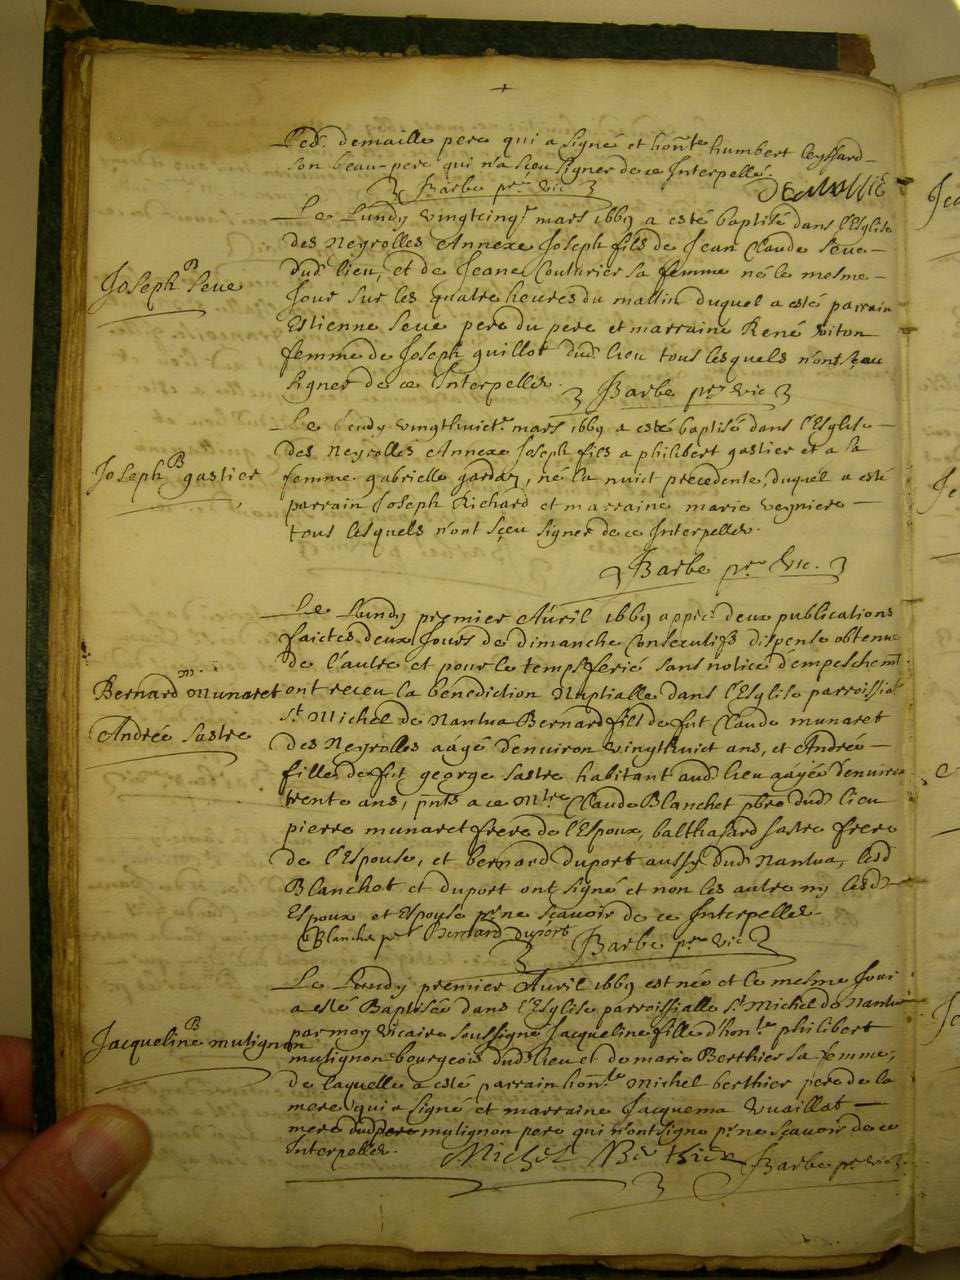 Led. demaille pere qui a signé et hon.te humbert Leyssard
son beau-pere qui n'a sçeu signer de ce Interpellé.
Barbe pr. vic
Demallie
Le Lundy vingtcinq.e mars 1669 a esté baptisé dans l'Esglise
des Neyrolles Annexe Joseph fils de Jean Claude Seue
dud. lieu, et de Jeane Couturier sa femme né le mesme
B
Joseph Seue
Jour sur les quatre heures du mattin duquel a esté parrain
Estienne Seue pere du pere et marraine René viton
femme de Joseph guillot dud. lieu tous lesquels n'ont sçeu
signer de ce Interpellez.
Barbe pr. vic
Le Jeudy vingthuict.e mars 1669 a esté baptisé dans l'Esglise
des Neyrolles Annexe Joseph fils a philibert gastier et a la
B
Joseph gastier
femme gabrielle, né la nuict precedente, duquel a esté
parrain Joseph Richard et marraine marie
tous lesquels n'ont sçeu signer de ce Interpellez.
Barbe pr. vic.
Le Lundy premier Auril 1669 deux publications
faictes deux Jours de dimanche consecutifs dispense obtenue
de l'autre et pour le temps ferié sans notice d'empeschem.t
m.
Bernard munaret
ont receu la benediction Nuptialle dans l'Esglise parroissial
Andrée Sastre
st. Michel de Nantua Bernard fils de fut Claude munaret
des Neyrolles aâgé d'enuiron vingthuict ans, et Andrée
fille de fut george Sastre habitant aud. lieu aâgée d'enuiron
trente ans, pnts a ce M.re Claude Blanchet pbre dud. lieu
pierre munaret frere de l'Espoux, balthasard Sastre frere
de l'Espouse, et bernard duport aussy dud. Nantua, lesd.
Blanchet et duport ont signé et non les autre ny lesd.
Espoux et Espouse pr. ne sçauoir de ce Interpellez.
C Blanchet pr. Bernard duport
Barbe pr. vic
Le Lundy premier Auril 1669 est née et le mesme Jour
a esté Baptisée dans l'Esglise parroissialle st. Michel de Nantua
B
Jacqueline mulignon
par moy vicaire soussigné Jacqueline fille d'hon.te philibert
mulignon bourgeois dud. lieu et de marie Berthier sa femme,
de laquelle a esté parrain hon.te michel berthier pere de la
mere qui a signé et marraine Jacquema Vuaillat
mere dud. pere mulignon pere qui n'ont signé pr. ne sçauoir de ce
Interpellez.
Michel Berthier
Barbe pr. vic